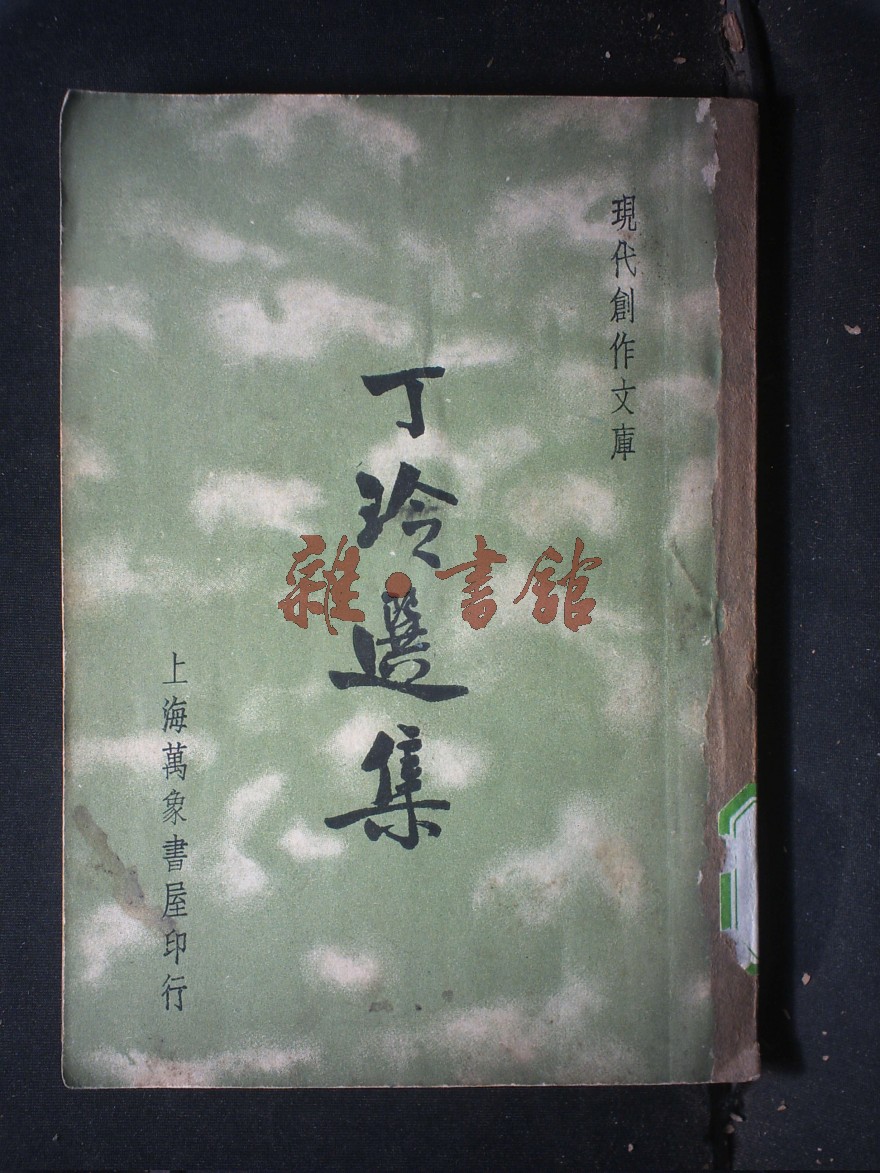 現代創作文庫
丁玲選集
雜·書館
上海萬象書屋印行